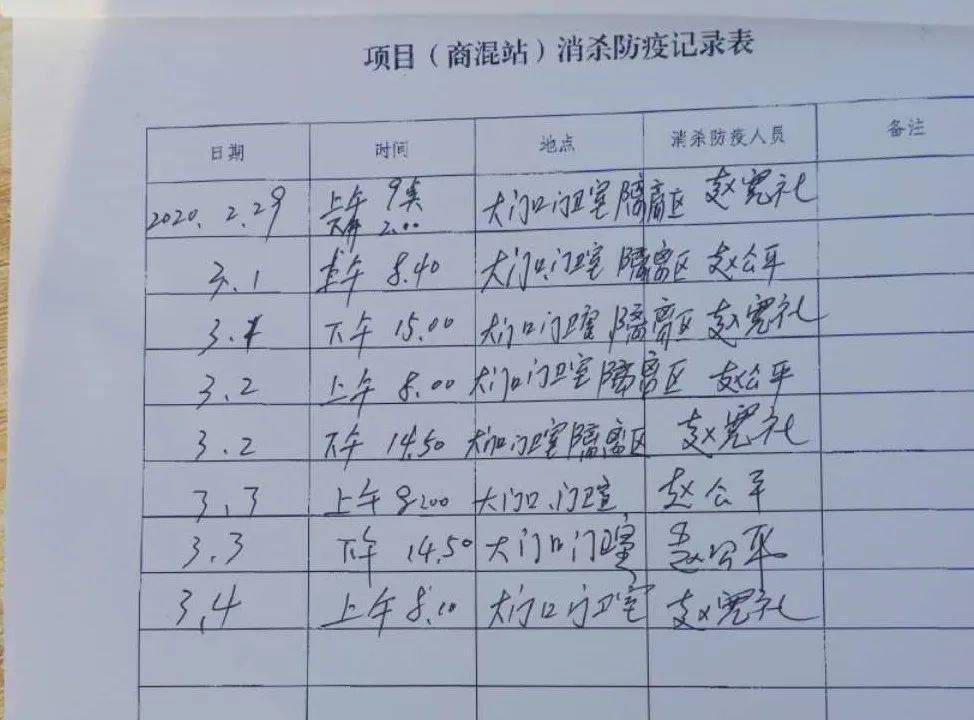 项目（商混站）消杀防疫记录表
日期 时间 地点 消杀防疫人员 备注
2020.2.29 上午 9点 大门口门卫室隔离区 赵宪礼
下午 2.00
3.1 上午 8.40 大门口.门卫室 隔离区 赵公平
3.1 下午 15.00 大门口门卫室 隔离区 赵宪礼
3.2 上午 8.00 大门口门卫室 隔离区 赵公平
3.2 下午 14.50 大门口门卫室隔离区 赵宪礼
3.3 上午 8:00 大门口.门卫室 赵公平
3.3 下午 14.50 大门口门卫室 赵公平
3.4 上午 8:10 大门口门卫室 赵宪礼